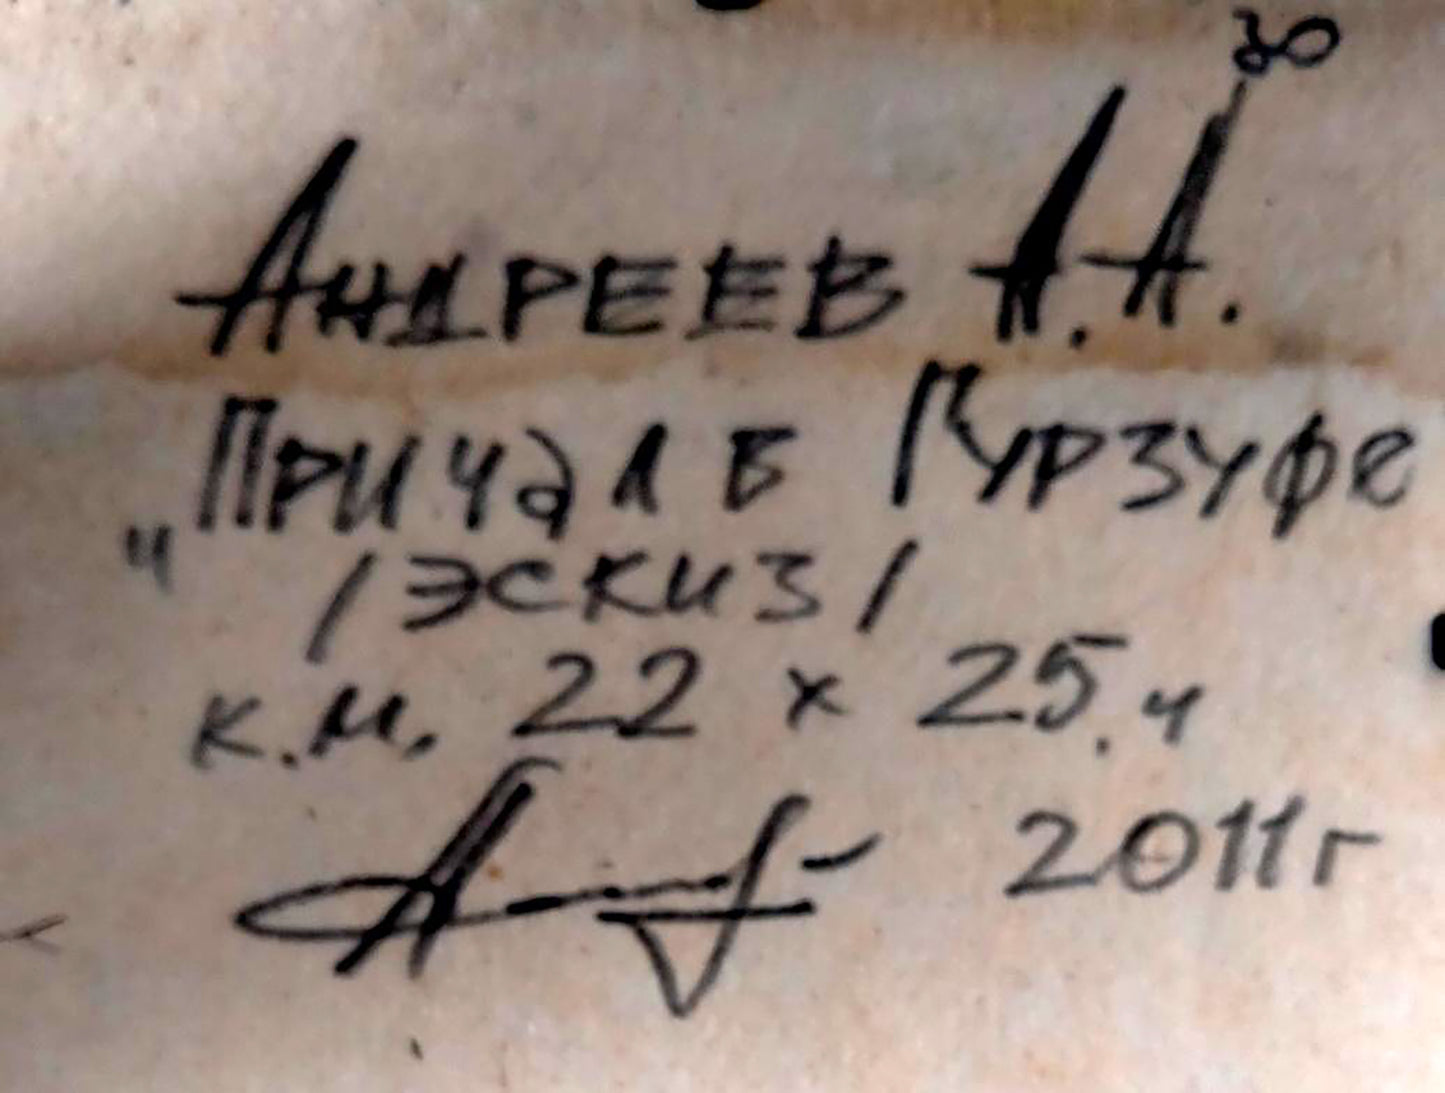 30
АНДРЕЕВ А.А.
„Причал в Гурзуфе
/эскиз/
к.м. 22 x 25,4
2011г